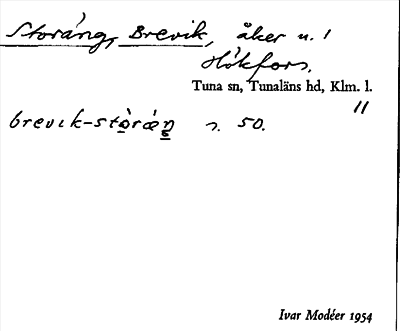 Storáng, Brevik, åker u. /
Hökfors.
Tuna sn, Tunaläns hd, Klm. l.
//
brevɩk-stòrǽŋ s. 50.
Ivar Modéer 1954